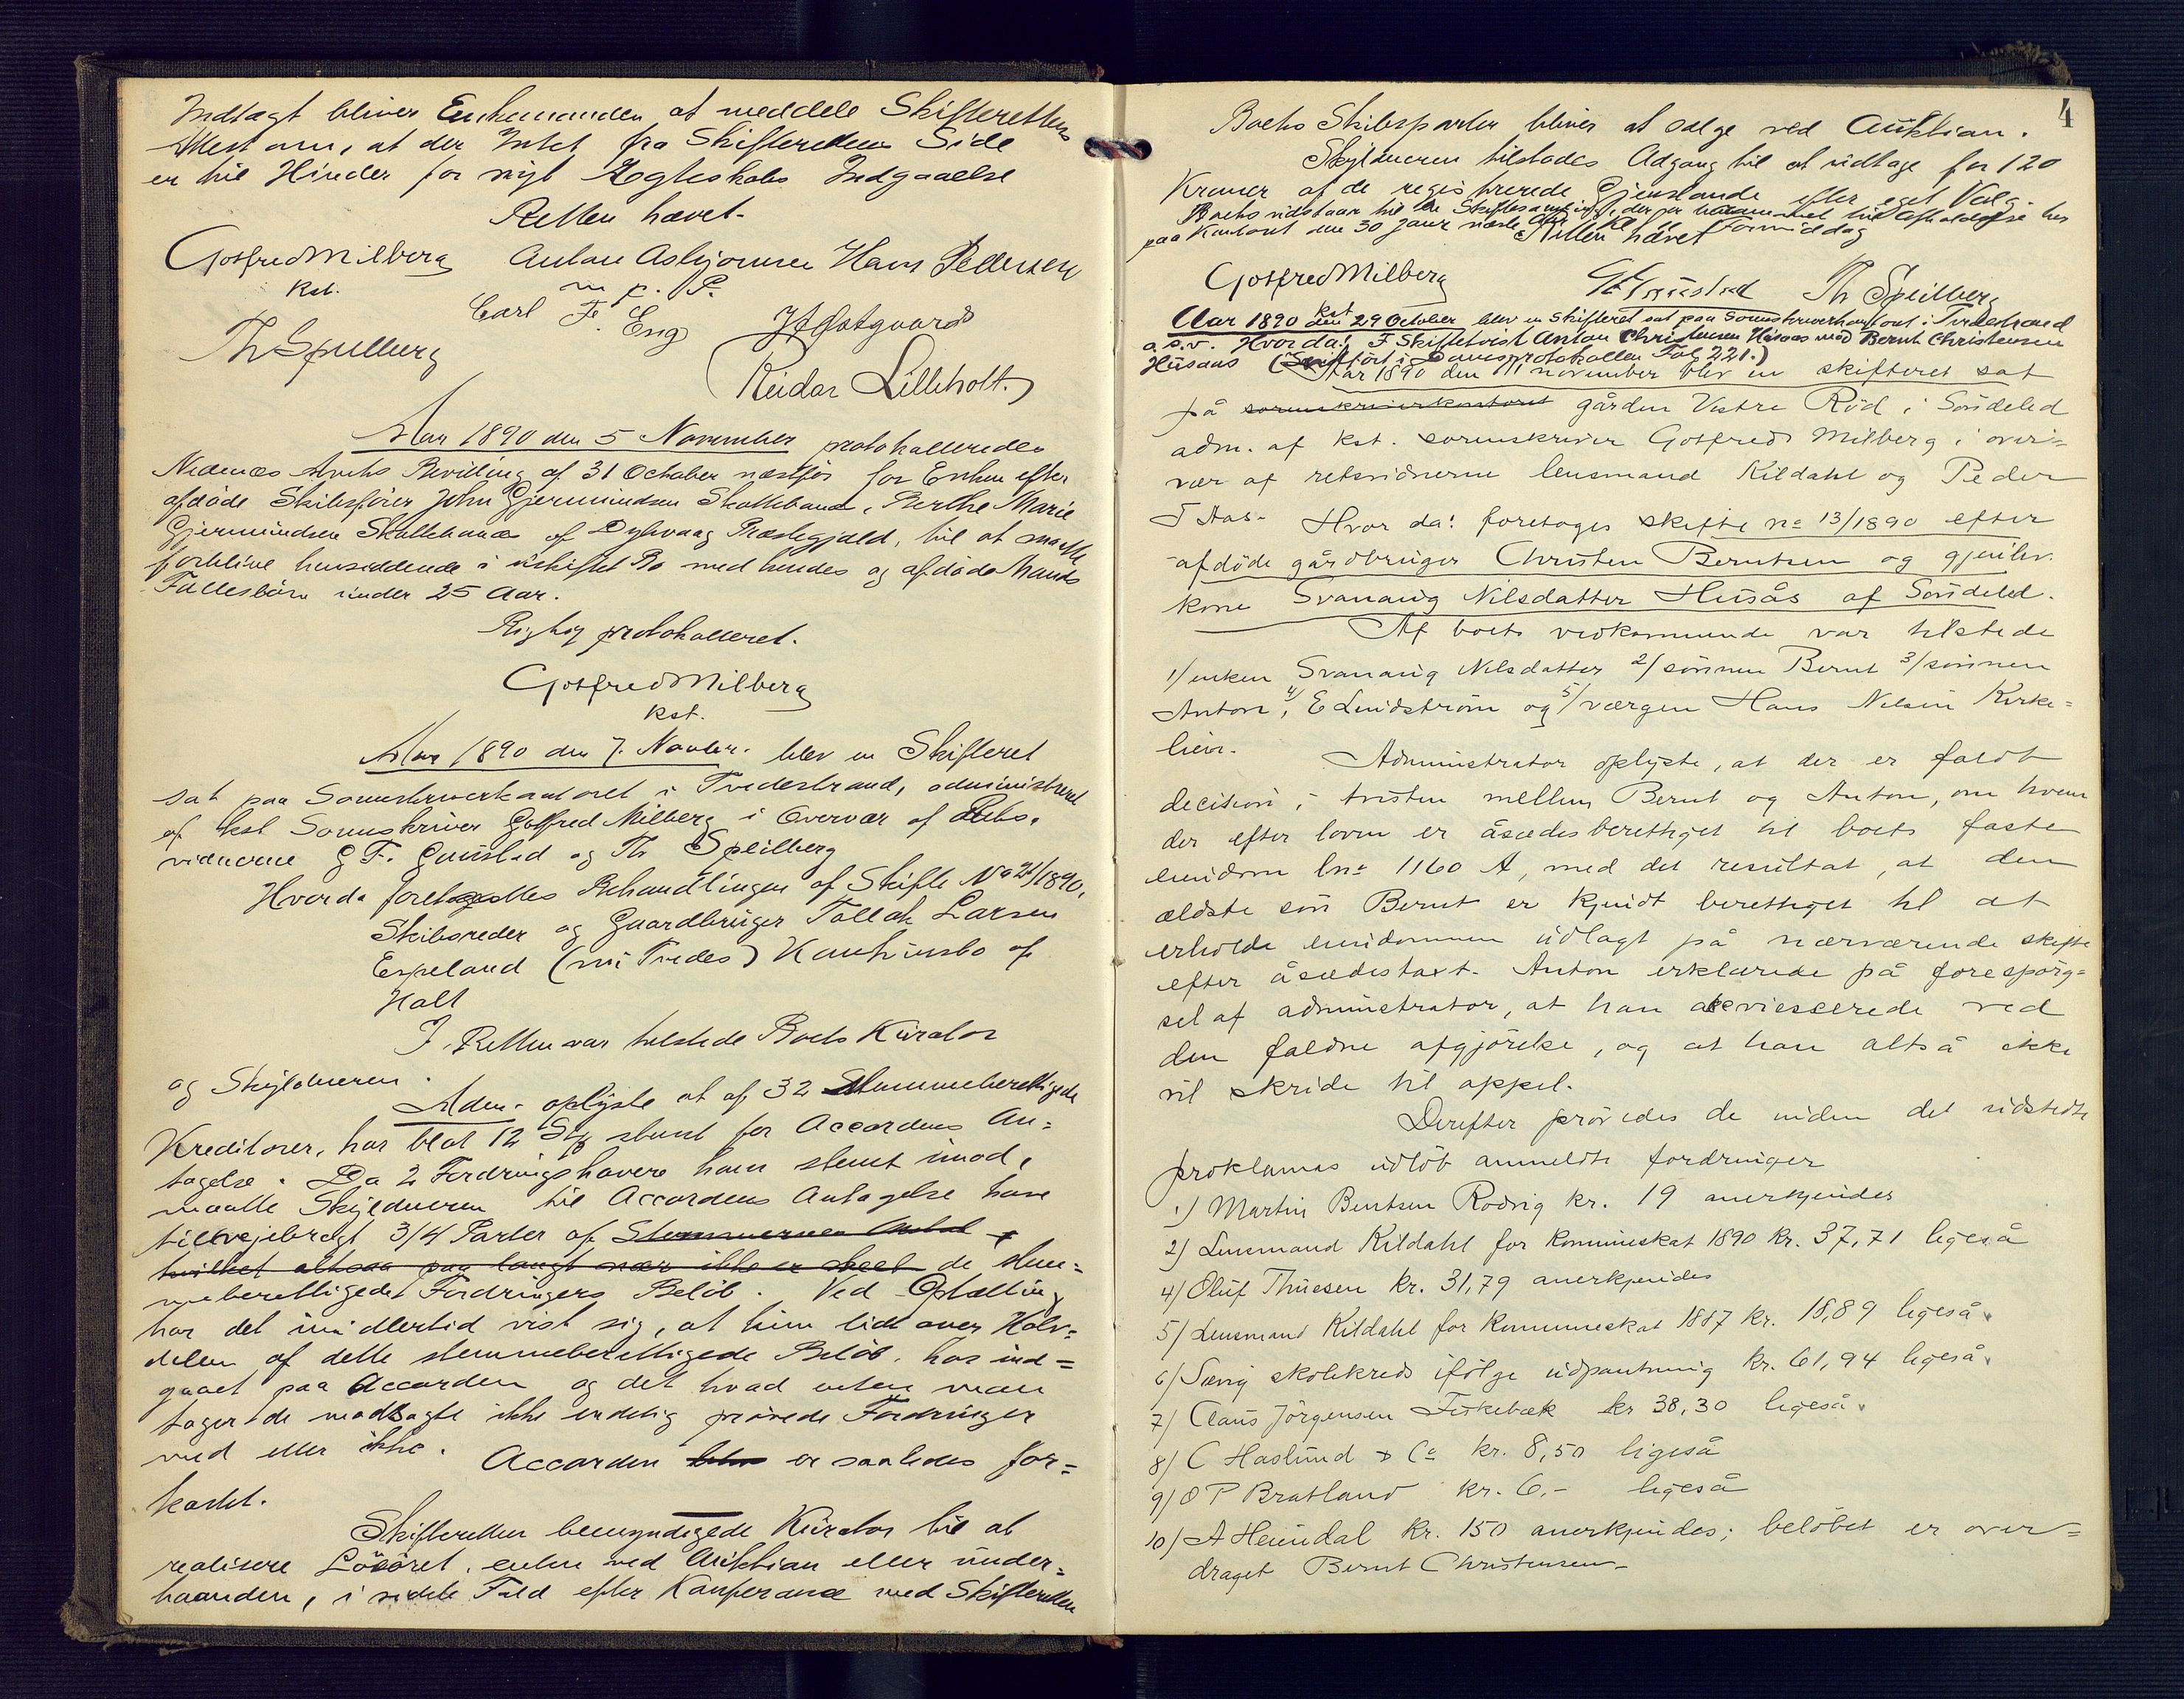 Indlagt bliver Enkemanden at meddele Skifterettens
Attest om, at der Intet fra Skifterettens Side
er til Hinder for nyt Ægteskabs Indgaaelse
Retten hævet.
Gotfred Milberg Anton Asbjørnsen Hans Pettersen
Kst. m. p. P.
Carl F. Eng
Th Speilberg
(Reidar Lilleholt.)
Aar 1890 den 5 November protokolleredes
Nedenæs Amts Bevilling af 31 October næstfør for Enken efter
afdøde Skibsfører John Gjermundsen Skottebaae, Berthe Marie
Gjermundsen Skottebaae af Dybvaag Præstegjæld, til at maatte
forblive hensiddende i uskiftet Bo med hendes og afdøde Mands
Fællesbørn under 25 Aar.
Rigtig protokolleret.
Gotfred Milberg
kst.
Aar 1890 den 7. Novbr. blev en Skifteret
sat paa Sorenskriverkontoret i Tvedestrand, administreret
af kst Sorenskriver Gotfred Milberg i Overvær af Rets-
vidnerne G F. Grimstad og Th Speilberg
Hvorda foretoges Behandlingen af Skifte No 21/1890,
Skibsreder og Gaardbruger Tallak Larsen
Espeland (nu Tvedes) Konkursbo af
Holt
I Retten var tilstede Boets Kurator
og Skyldneren.
Adm. oplyste at af 32 Stemmeberettigede
Kreditorer, har blot 12 Stk stemt for Accordens An=
tagelse. Da 2 Fordringshavere have stemt imod,
maatte Skyldneren til Accordens Antagelse have
tilvejebragt 3/4 Parter af Stemmernes Antal
hvilket altsaa paa langt nær ikke er skeet de stem=
meberettigedes Fordringers Beløb. Ved Optælling
har det imidlertid vist sig, at kun lidt over Halv=
delen af dette stemmeberettigede Beløb har ind=
gaaet paa Accorden og det hvad enten man
tager de modsagte ikke endelig prøvede Fordringer
med eller ikke. Accorden blev er saaledes for=
kastet.
Skifteretten bemyndigede Kurator til at
realisere Løsøret, enten ved Auktion eller under=
haanden, i sidste Fald efter Konferance med Skifteretten
4
Boets Skibsparter bliver at sælge ved Auktion.
Skyldneren tilstodes Adgang til at udtage for 120
Kroner af de registrerede Gjenstande efter eget Valg.
Boets udstaar til en Skiftesamling, der er berammet til Afholdelse her
paa Kontoret den 30 Janr næste Aar Formiddag
Retten hævet
Gotfred Milberg G F Grimstad Th Speilberg
Aar 1890 den 29 October blev en Skifteret sat paa Sorenskriverkontoret i Tvedestrand
o. s. v. Hvor da! F Skiftetvist Anton Christensen Husaas mod Bernt Christensen
Husaas ( ført i Domsprotokollen Fol 221.)
Aar 1890 den 11 november blev en skifteret sat
på sorenskriverkontoret gården Vestre Röd i Söndeled
adm. af kst. sorenskriver Gotfred Milberg i over=
vær af retsvidnerne lensmand Kildahl og Peder
T Aas. Hvor da! foretoges skifte no 13/1890 efter
afdöde gårdbruger Christen Berntsen og gjenlev.
kone Svanaug Nilsdatter Husås af Söndeled.
Af boets vedkommende var tilstede
1/ enken Svanaug Nilsdatter 2/ sönnen Bernt 3/ sönnen
Anton, 4/ E Lindström og 5/ værgen Hans Nilsen Kirke=
lien.
Administrator oplyste, at der er faldt
decision i tvisten mellem Bernt og Anton, om hvem
der efter loven er åsædesberettiget til boets faste
eiendom lno 1160 A, med det resultat, at den
ældste sön Bernt er kjendt berettiget til at
erholde eiendommen udlagt på nærværende skifte
efter åsædestaxt. Anton erklærede på forespörg=
sel af administrator, at han acqviescerede ved
den faldne afgjörelse, og at han altså ikke
vil skride til appel.
Derefter prövedes de inden det udstedte
proklamas udlöb anmeldte fordringer
1) Martin Bentsen Rodvig kr. 19 anerkjendes
2) Lensmand Kildahl for kommuneskat 1890 kr. 37,71 ligeså
4) Oluf Thuesen kr. 31,79 anerkjendes
5/ Lensmand Kildahl for kommuneskat 1887 kr. 18,89 ligeså.
6/ Søvig skolekreds ifölge udpantning kr. 61,94 ligeså.
7/ Claus Jörgensen Fiskebæk kr 38,30 ligeså.
8/ C Haslund & Co kr. 8,50 ligeså
9/ O P Bratland kr. 6.- ligeså
10) A Heimdal kr. 150 anerkjendes; belöbet er over=
draget Bernt Christensen